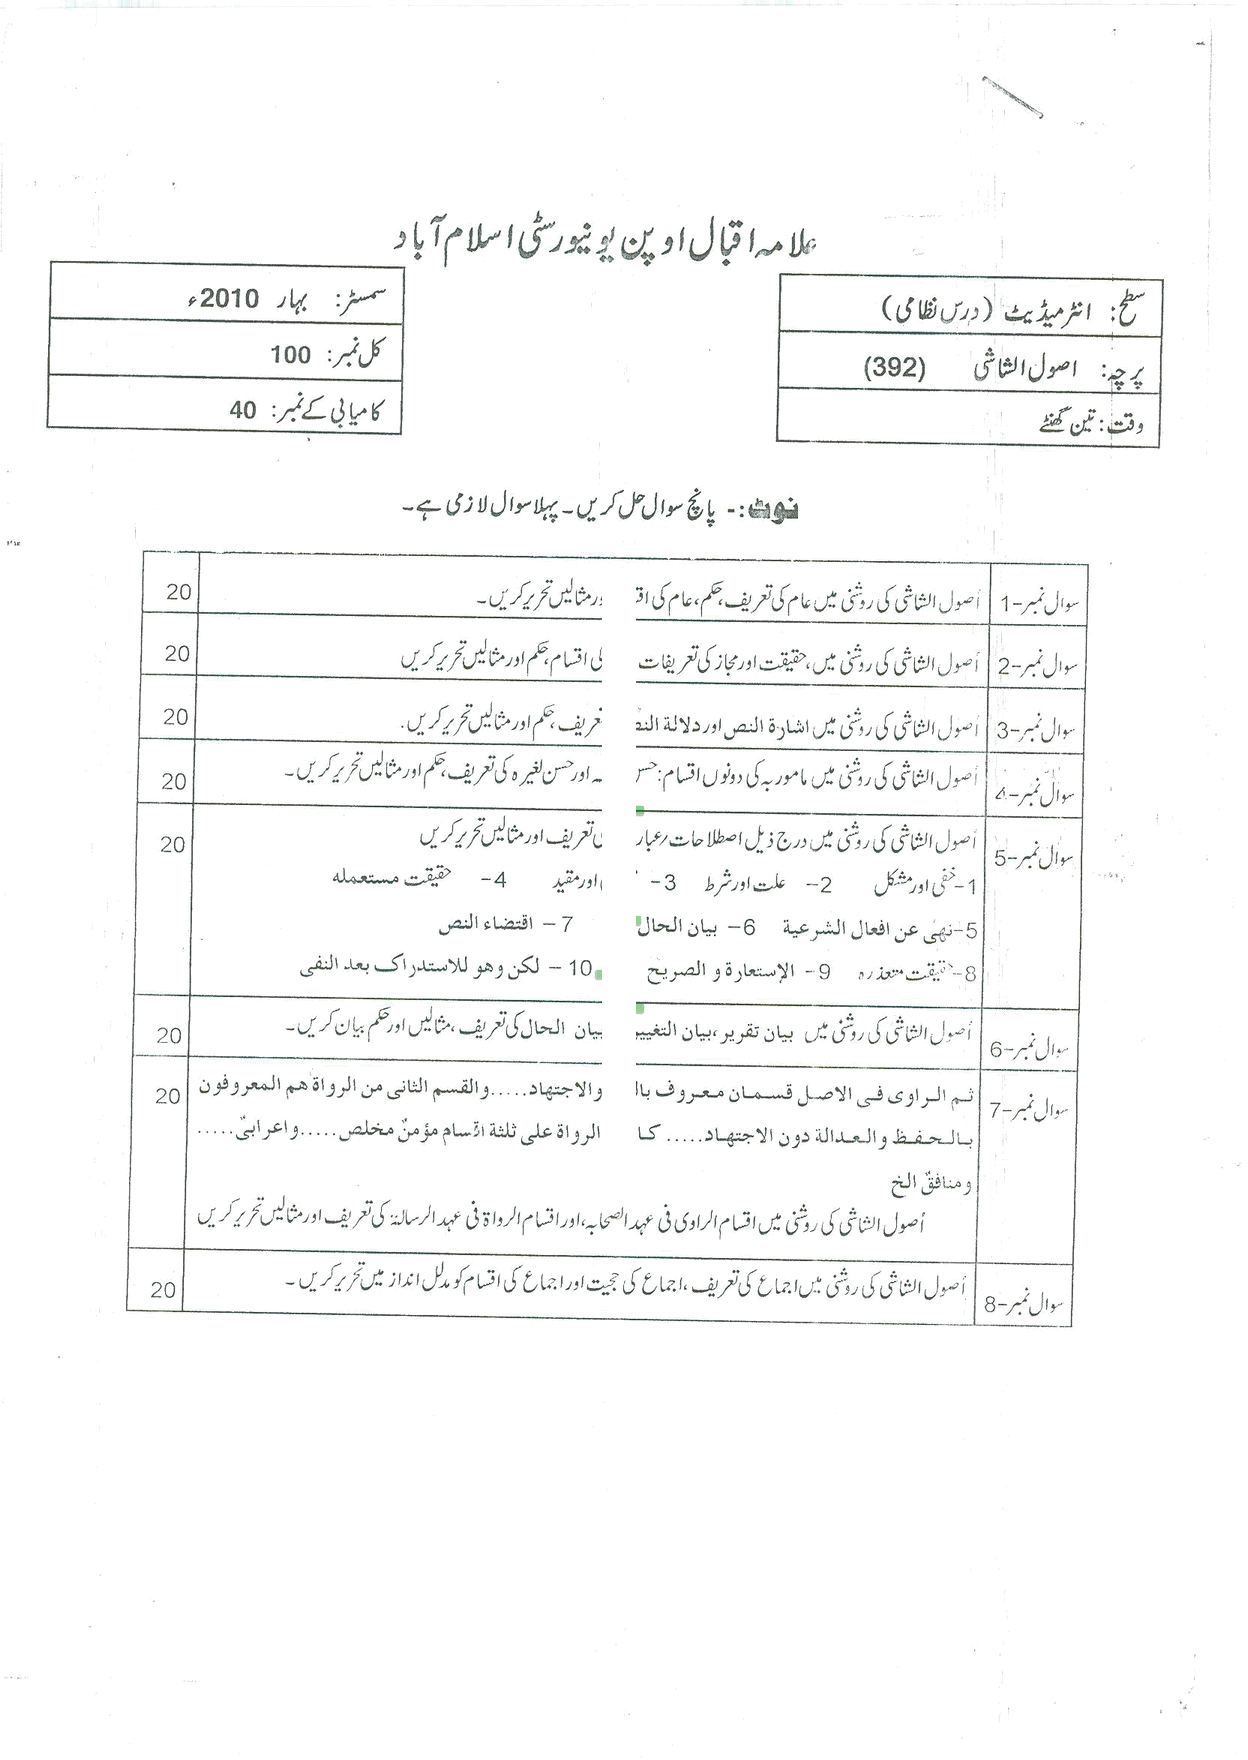 علامہ اقبال اوپن یونیورسٹی اسلام آباد
سطح: انٹرمیڈیٹ (درس نظامی)
سمسٹر: بہار 2010ء
پرچہ: اصول الشاشی (392)
کل نمبر: 100
وقت: تین گھنٹے
کامیابی کے نمبر: 40
نوٹ:- پانچ سوال حل کریں۔ پہلا سوال لازمی ہے۔
سوال نمبر-1 اُصول الشاشی کی روشنی میں عام کی تعریف، حکم، عام کی اور مثالیں تحریر کریں۔ 20
سوال نمبر-2 اُصول الشاشی کی روشنی میں، حقیقت اور مجاز کی تعریفات کی اقسام، حکم اور مثالیں تحریر کریں 20
سوال نمبر-3 اُصول الشاشی کی روشنی میں اشارۃ النص اور دلالۃ تعریف، حکم اور مثالیں تحریر کریں. 20
سوال نمبر-4 اُصول الشاشی کی روشنی میں مامور بہ کی دونوں اقسام: اور حسن لغیرہ کی تعریف، حکم اور مثالیں تحریر کریں۔ 20
سوال نمبر-5 اُصول الشاشی کی روشنی میں درج ذیل اصطلاحات/ تعریف اور مثالیں تحریر کریں 20
1-خفی اور مشکل 2- علت اور شرط 3- اور مقید 4- حقیقت مستعملہ
5-نہی عن افعال الشرعیة 6- بیان الحال 7- اقتضاء النص
8-حقیقت متعذرہ 9- الإستعارة و الصریح 10- لکن وھو للاستدراک بعد النفی
سوال نمبر-6 اُصول الشاشی کی روشنی میں بیان تقریر، بیان التغییر بیان الحال کی تعریف، مثالیں اور حکم بیان کریں۔ 20
سوال نمبر-7 ثم الراوی فی الاصل قسمان معروف والاجتهاد.....والقسم الثانی من الرواة هم المعروفون 20
بالحفظ والعدالة دون الاجتهاد..... الرواة علی ثلثة اقسام مؤمنٌ مخلص.....واعرابیٌ.....
ومنافقٌ الخ
اُصول الشاشی کی روشنی میں اقسام الراوی فی عہد الصحابہ، اور اقسام الرواۃ فی عہد الرسالۃ کی تعریف اور مثالیں تحریر کریں
سوال نمبر-8 اُصول الشاشی کی روشنی میں اجماع کی تعریف، اجماع کی حجیت اور اجماع کی اقسام کو مدلل انداز میں تحریر کریں۔ 20